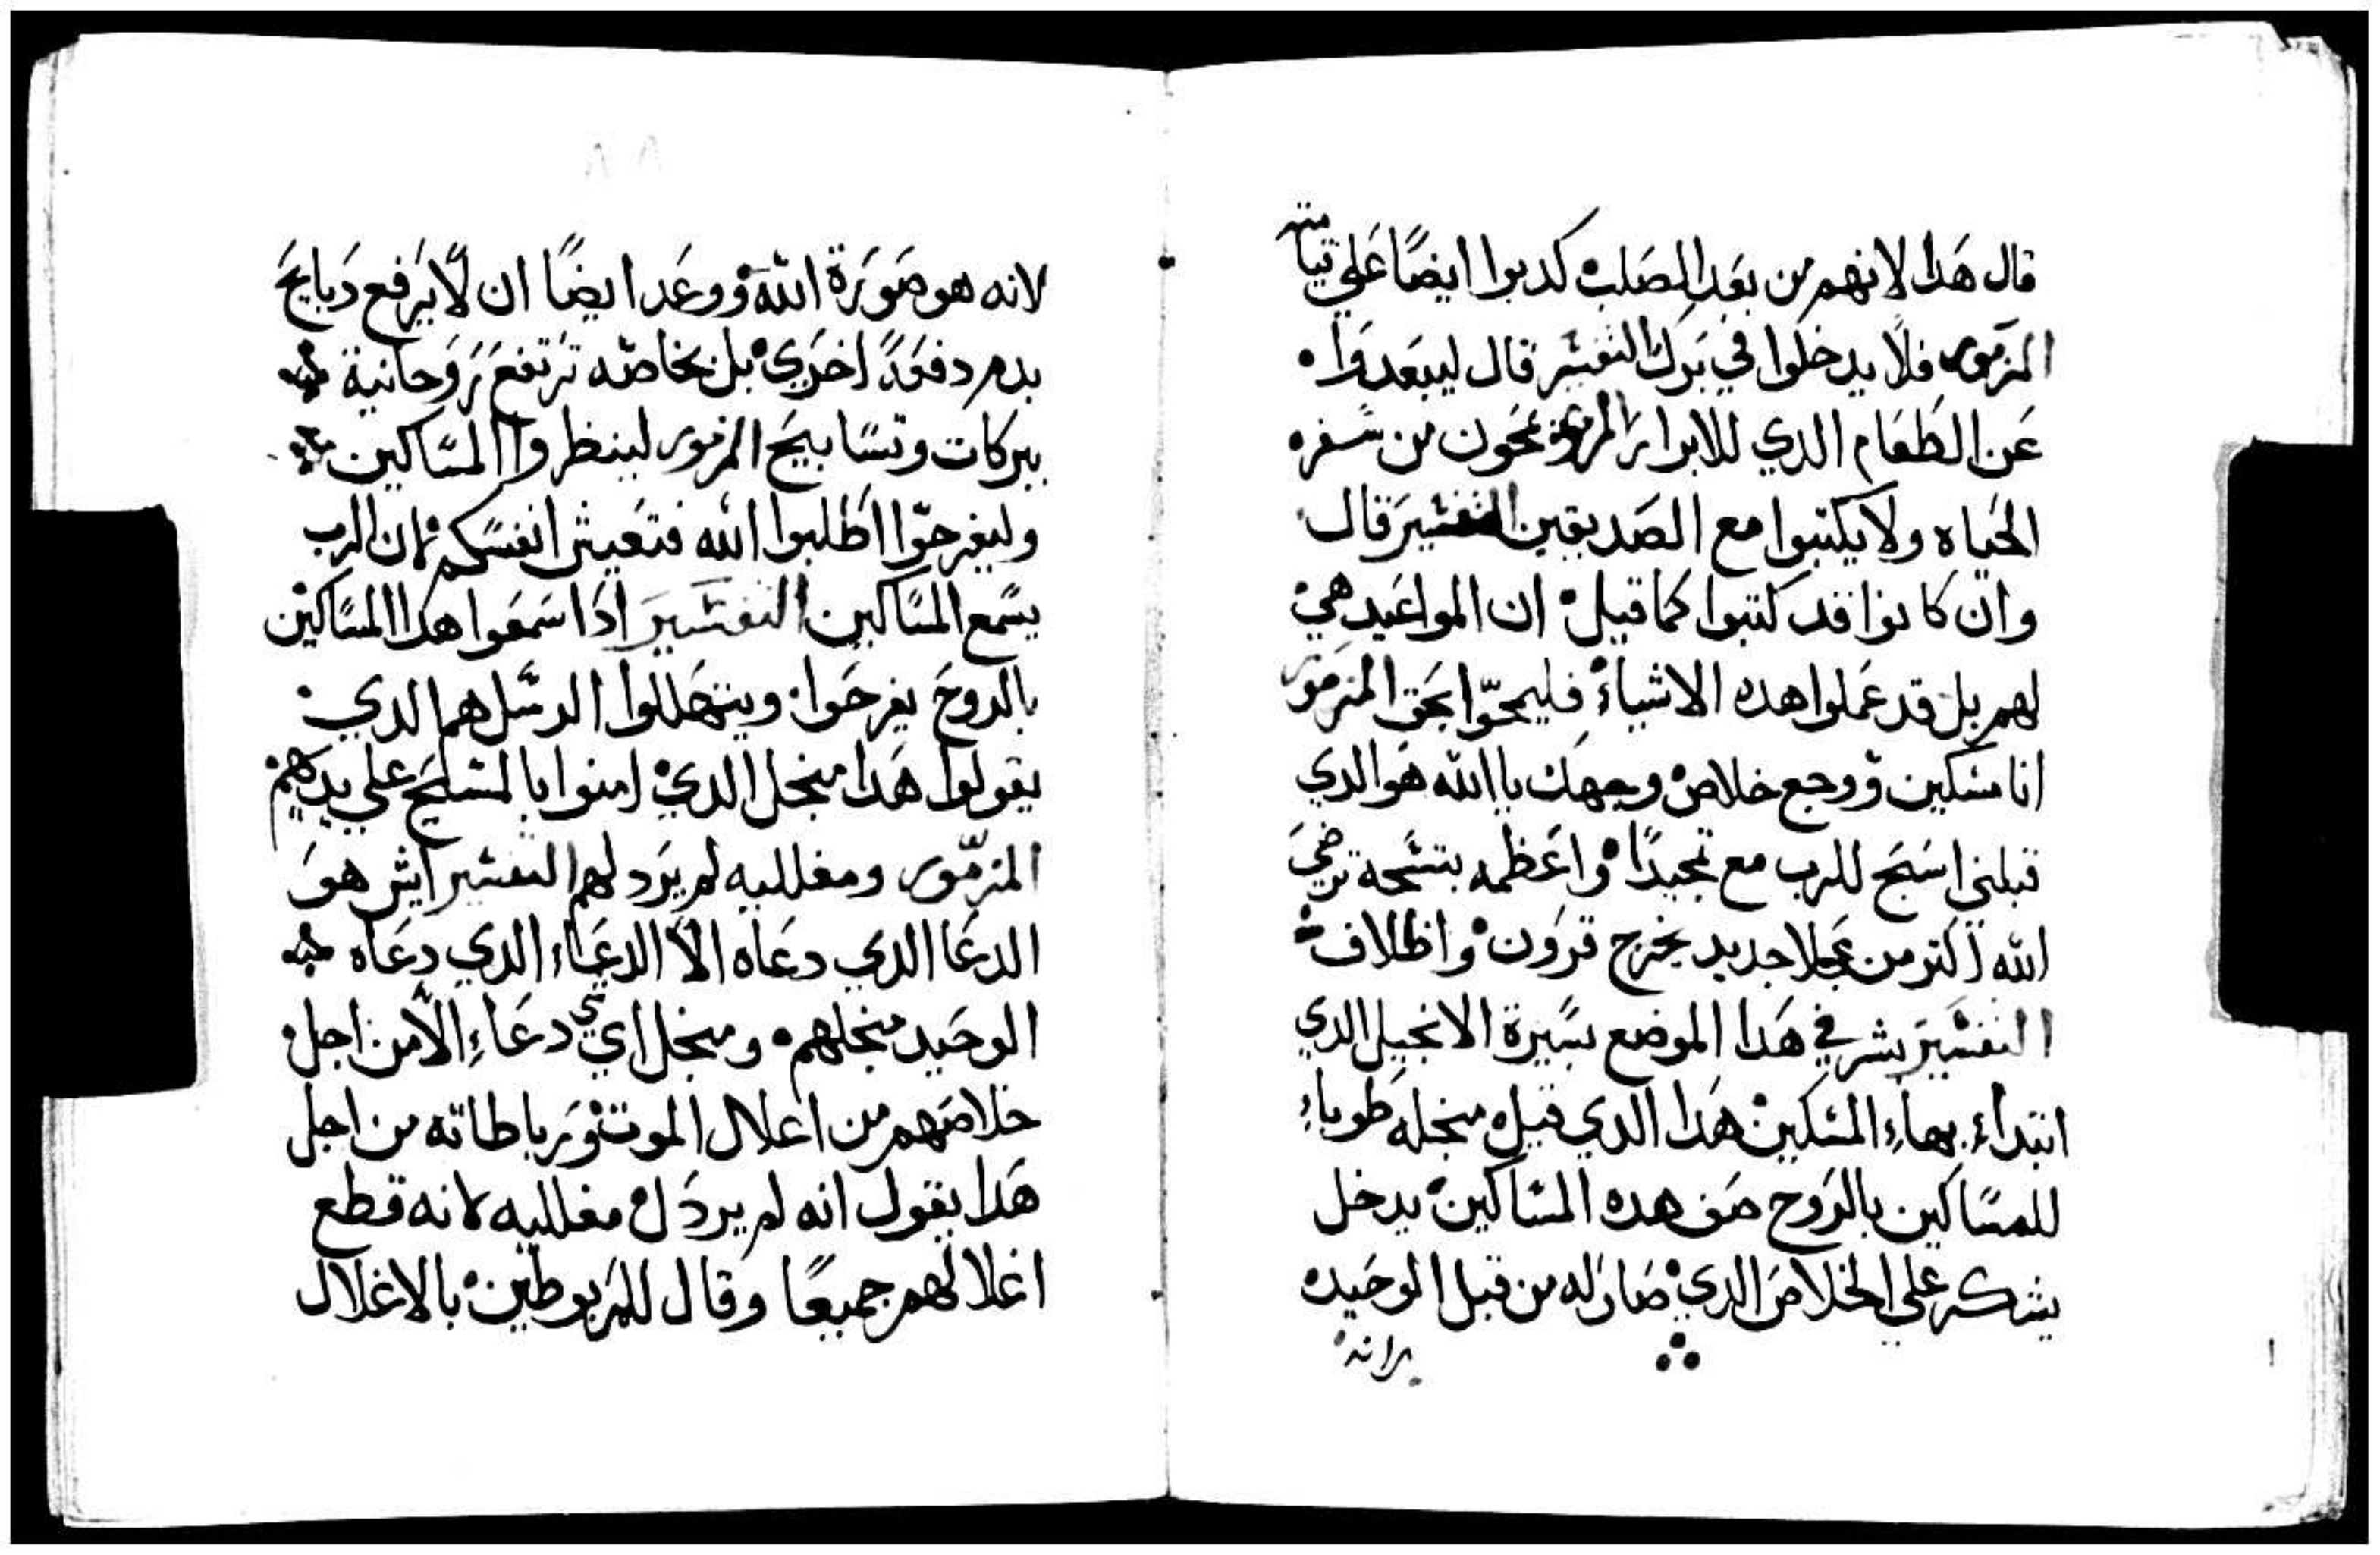 قال هدا لانهم من بعد الصلب كدبوا ايضًا علي قيامته
المزمور فلا يدخلوا في برك التفسير قال ليبعدوا
عن الطعام الدي للابرار المزمور يمحون من سفر
الحياه ولا يكتبوا مع الصديقين التفسير قال
وان كانوا قد كتبوا كما قيل ان المواعيد هي
لهم بل قد عملوا هده الاشياء فليمحّوا بحق المزمور
انا مسكين ووجع خلاص وجهك ياالله هو الدي
قبلني اسبح للرب مع تمجيدًا واعظمه بتسحة ترضي
الله اكتر من عجلا جديد يخرج قرون واظلاف
التفسير بشر في هدا الموضع بسيرة الانجيل الدي
ابتداء بهاء المسكين هدا الدي قيل منجله طوباء
للمساكين بالروح صف هده المساكين يدخل
يشكر علي الخلاص الدي صار له من قبل الوحيد
لانه هو صورة الله ووعد ايضًا ان لا يرفع دبايح
بدم دفعة اخري بل بخاصه ترتفع روحانية
ببركات وتسابيح المزمور لينظروا المساكين
وليفرحّوا اطلبوا الله فتعيش انفسكم لان الرب
يسمع المساكين التفسير ادا سمعوا هدا المساكين
بالروح يفرحوا ويتهللوا الرسل هم الدي
يقولوا هدا منجل الدي امنوا بالمسيح علي يديهم
المزمّور ومغلليه لم يرد لهم التفسير ايش هو
الدعا الدي دعاه الا الدعاء الدي دعاه
الوحيد منجلهم ومنجل اي دعاء الا من اجل
خلاصهم من اغلال الموت ورباطاته من اجل
هدا يقول انه لم يردل مغلليه لانه قطع
اغلالهم جميعًا وقال للمربوطين بالاغلال